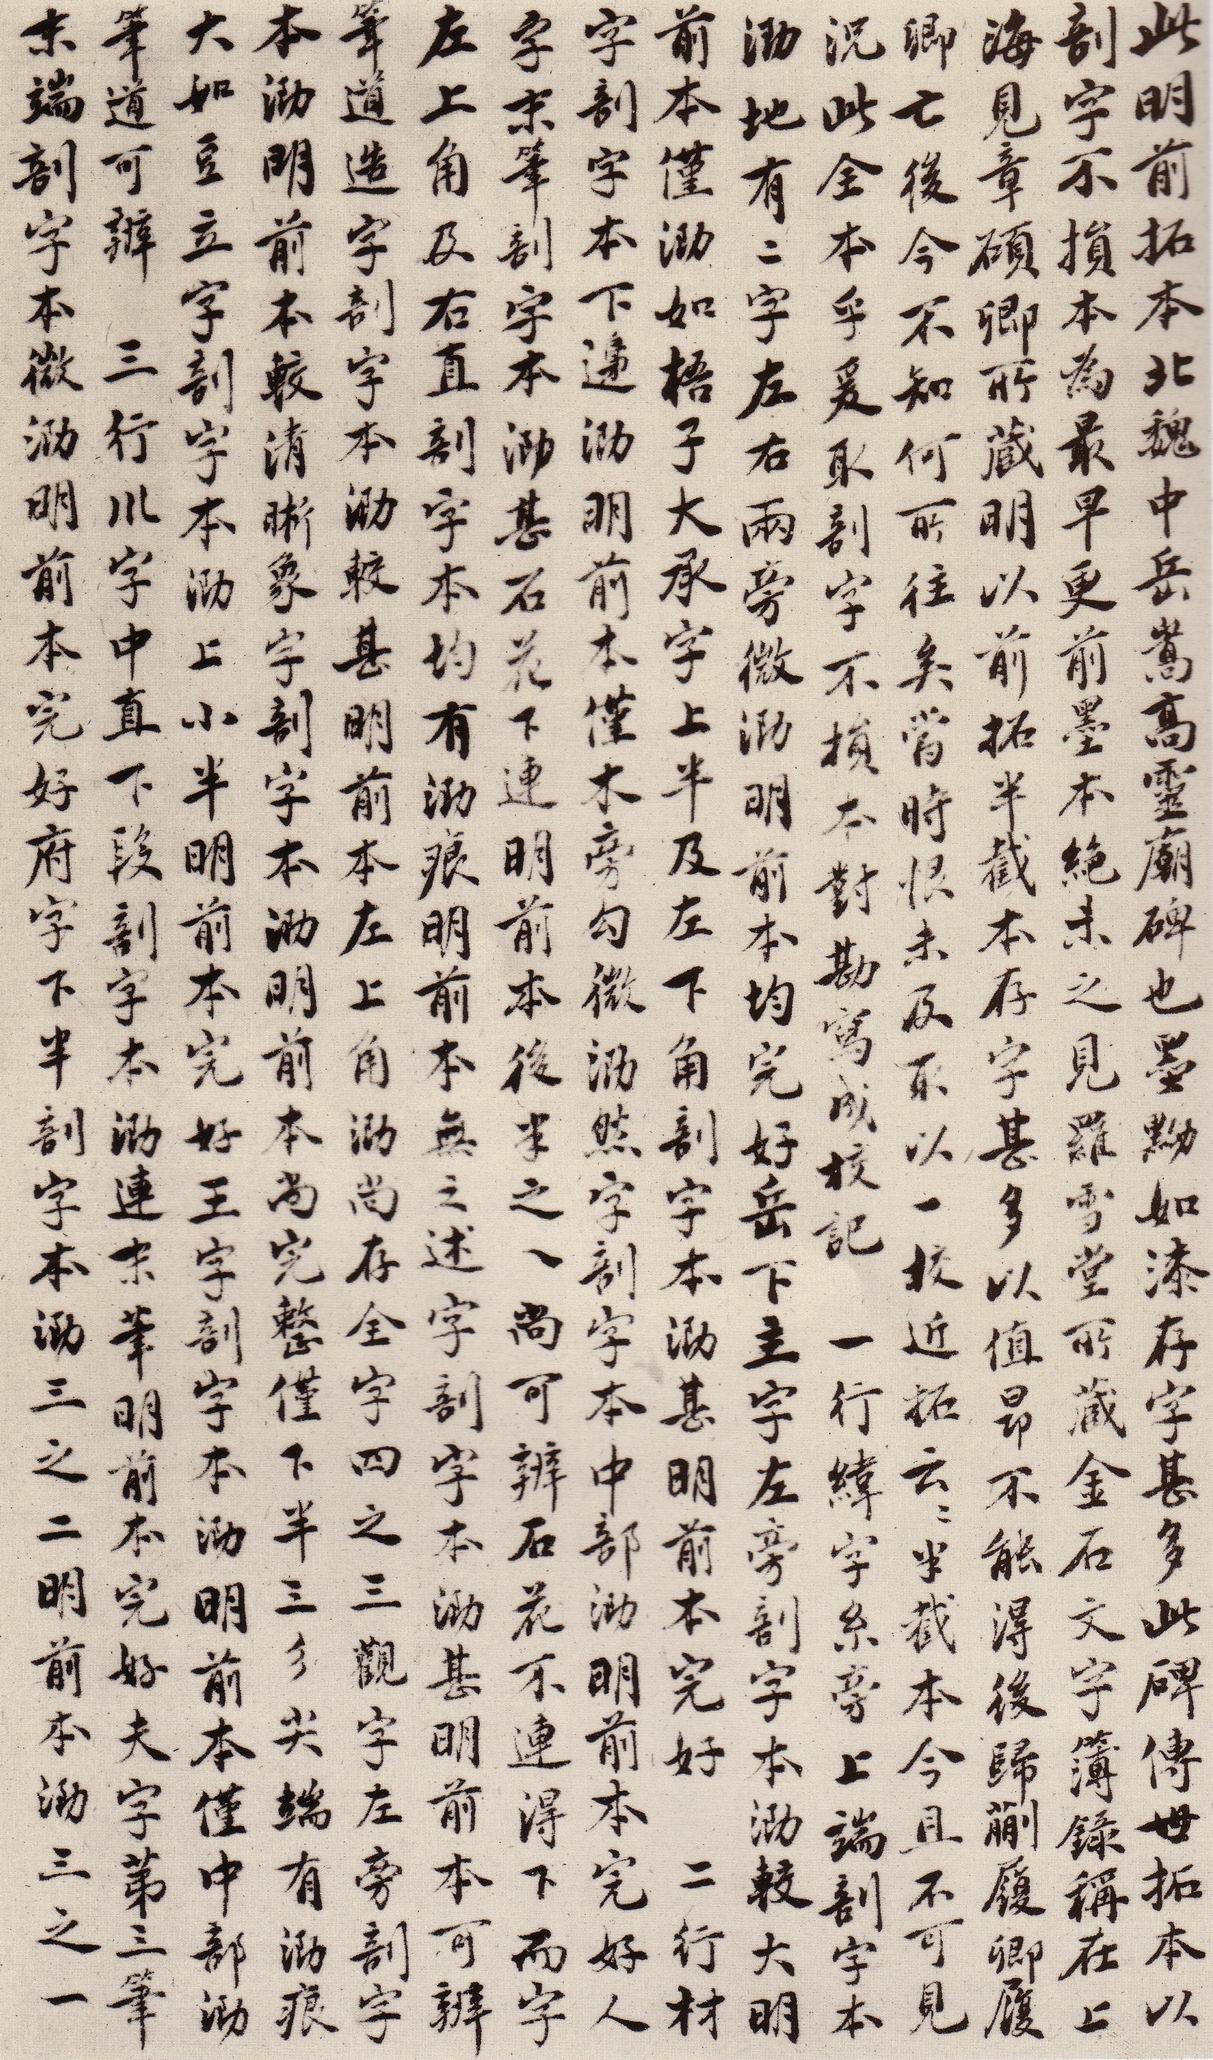 此明前拓本北魏中岳嵩高靈廟碑也墨黝如漆存字甚多此碑傳世拓本以
剖字不損本為最早更前墨本絕未之見羅雪堂所藏金石文字簿錄稱在上
海見章碩卿所藏明以前拓半截本存字甚多以值昂不能得後歸蒯履卿履
卿亡後今不知何所往矣當時恨未及取以一校近拓云〻半截本今且不可見
況此全本乎爰取剖字不損本對勘寫成校記　一行緯字糸旁上端剖字本
泐地有二字左右兩旁微泐明前本均完好岳下主字左旁剖字本泐較大明
前本僅泐如梧子大承字上半及左下角剖字本泐甚明前本完好　二行材
字剖字本下邊泐明前本僅木旁勾微泐然字剖字本中部泐明前本完好人
字末筆剖字本泐甚石花下連明前本後半之乀尚可辨石花不連得下而字
左上角及右直剖字本均有泐痕明前本無之述字剖字本泐甚明前本可辨
筆道造字剖字本泐較甚明前本左上角泐尚存全字四之三觀字左旁剖字
本泐明前本較清晰象字剖字本泐明前本尚完整僅下半三彡尖端有泐痕
大如豆立字剖字本泐上小半明前本完好王字剖字本泐明前本僅中部泐
筆道可辨　三行川字中直下段剖字本泐連末筆明前本完好夫字第三筆
末端剖字本微泐明前本完好府字下半剖字本泐三之二明前本泐三之一